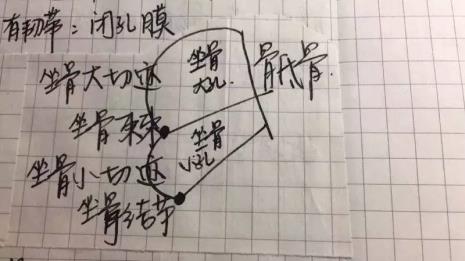 有韧带：闭孔膜
坐骨大切迹
坐骨大孔
骶骨
坐骨
坐骨小孔
坐骨小切迹
坐骨结节